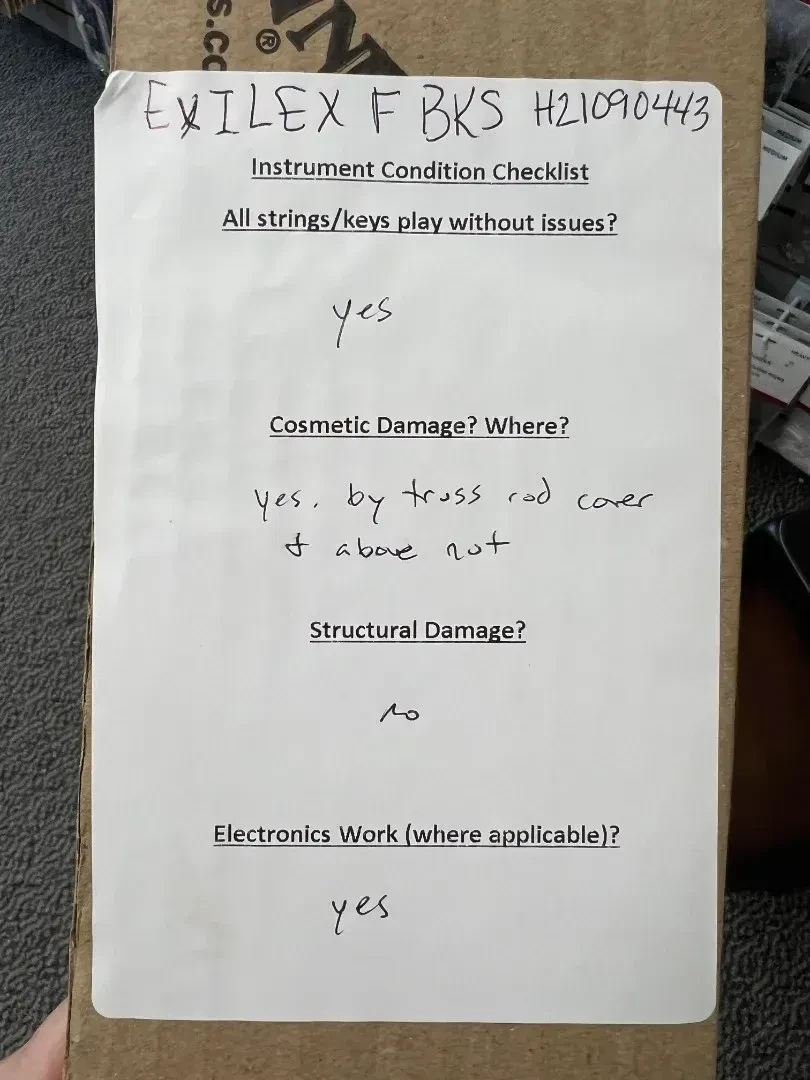 s.co
®
EXILEX F BKS H21090443
Instrument Condition Checklist
All strings/keys play without issues?
yes
Cosmetic Damage? Where?
yes, by truss rod cover
& above nut
Structural Damage?
No
Electronics Work (where applicable)?
yes
MEDIUM
MEDIUM